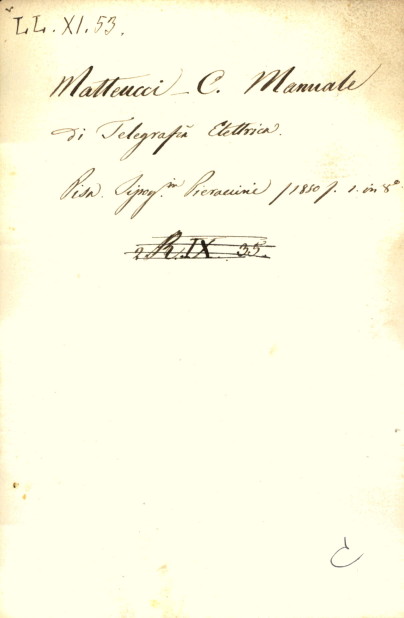 LL. XI. 53.
Matteucci - C. Manuale
di Telegrafia Elettrica.
Pisa. Tipog.in Pieraccini /1850/. 1. in 8°
2 R. IX. 35.